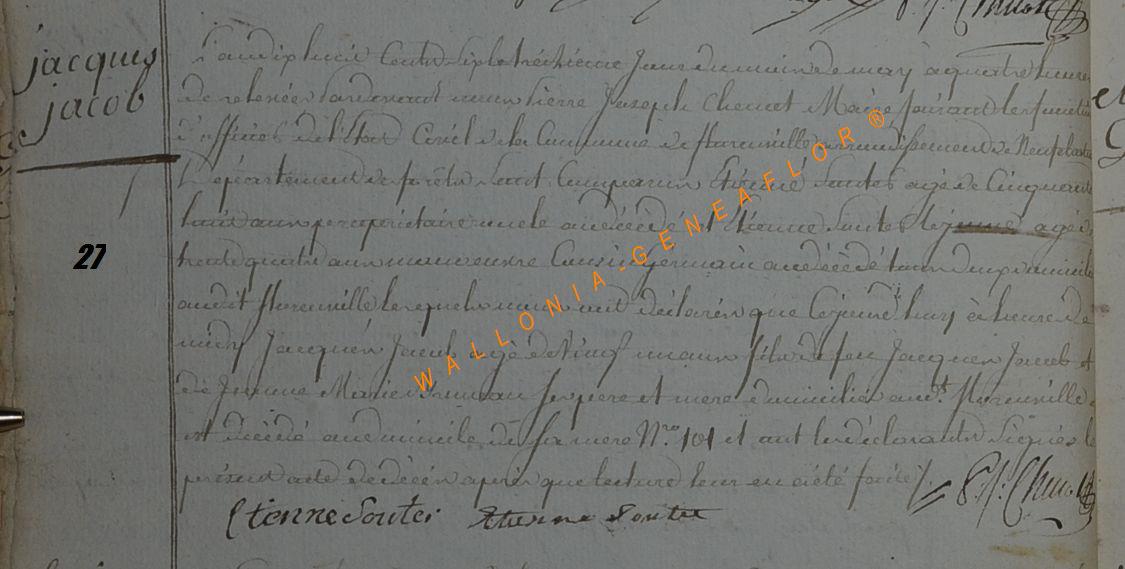 jacques
jacob
27
L'an dix huit Cent dix le treizieme Jour du mois de may a quatre heures
de relevée Pardevant nous Pierre Joseph Chenot Maire faisant les fonctions
d'officier de l'Etat Civil de la Commune de florenville arrondissement de Neufchateau
Département de forêts Sont Comparus Etienne Soutes agé de Cinquante
huit ans proprietaire oncle au décédé et Etienne Soutes le jeune agé de
trente quatre ans manoeuvre Cousin germain au décédé tous deux domiciliés
audit florenville lesquels nous ont déclarés que Cejourd'huy heure de
midy Jacques Jacob agé de Neuf mois fils de feu Jacques Jacob et
de Jeanne Marie Ses pere et mere domiciliés audt florenville
est décédé au domicile de Sa mere Nro 101 et ont les déclarants Signés le
présent acte de décés aprés que lecture leur en a été faite
P. J. Chenot
Etienne Soutes Etienne Soutes
WALLONIA-GENEAFLOR ®